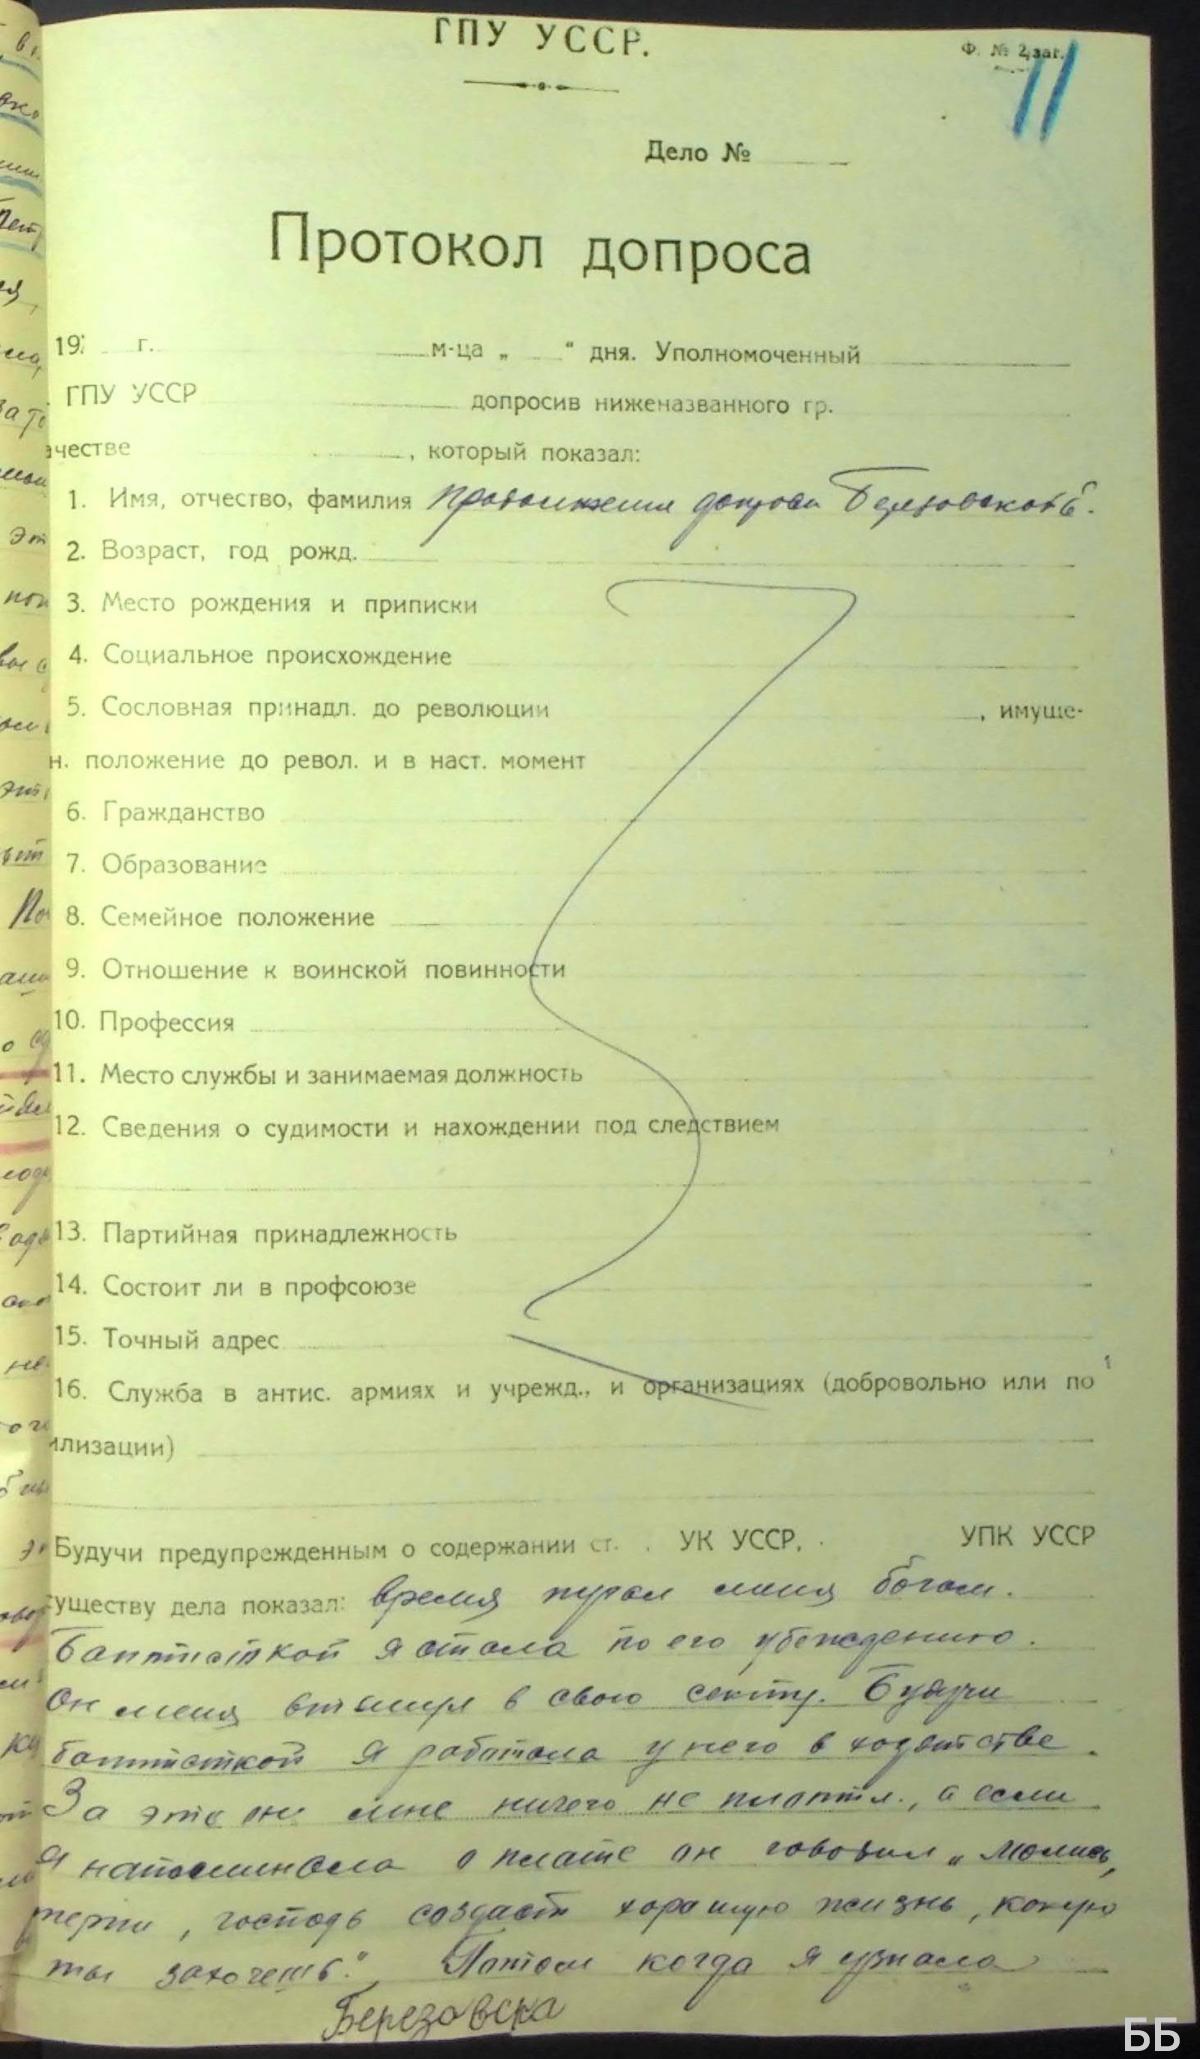 ГПУ УССР.
Ф. № 2, заг.
11
Дело №
Протокол допроса
19 г. м-ца „ “ дня. Уполномоченный
ГПУ УССР допросив ниженазванного гр.
ачестве , который показал:
1. Имя, отчество, фамилия продолжения допроса Березовской.
2. Возраст, год рожд.
3. Место рождения и приписки
4. Социальное происхождение
5. Сословная принадл. до революции , имуще-
н. положение до револ. и в наст. момент
6. Гражданство
7. Образование
8. Семейное положение
9. Отношение к воинской повинности
10. Профессия
11. Место службы и занимаемая должность
12. Сведения о судимости и нахождении под следствием
13. Партийная принадлежность
14. Состоит ли в профсоюзе
15. Точный адрес
16. Служба в антис. армиях и учрежд., и организациях (добровольно или по
илизации)
Будучи предупрежденным о содержании ст. . УК УССР, . УПК УССР
существу дела показал: время пугал меня богом.
Баптисткой я стала по его убеждению.
Он меня втянул в свою секту. Будучи
баптисткой я работала у него в хозяйстве.
За это он мне ничего не платил, а если
я напоминала о плате он говорил „молись,
терпи, господь создаст хорошую жизнь, какую
ты захочешь“. Потом когда я узнала
Березовска
ББ